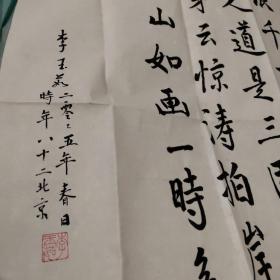 千
道是三国
云惊涛拍岸
山如画一時多
李玉二零〻五年春日
時年八十二北京